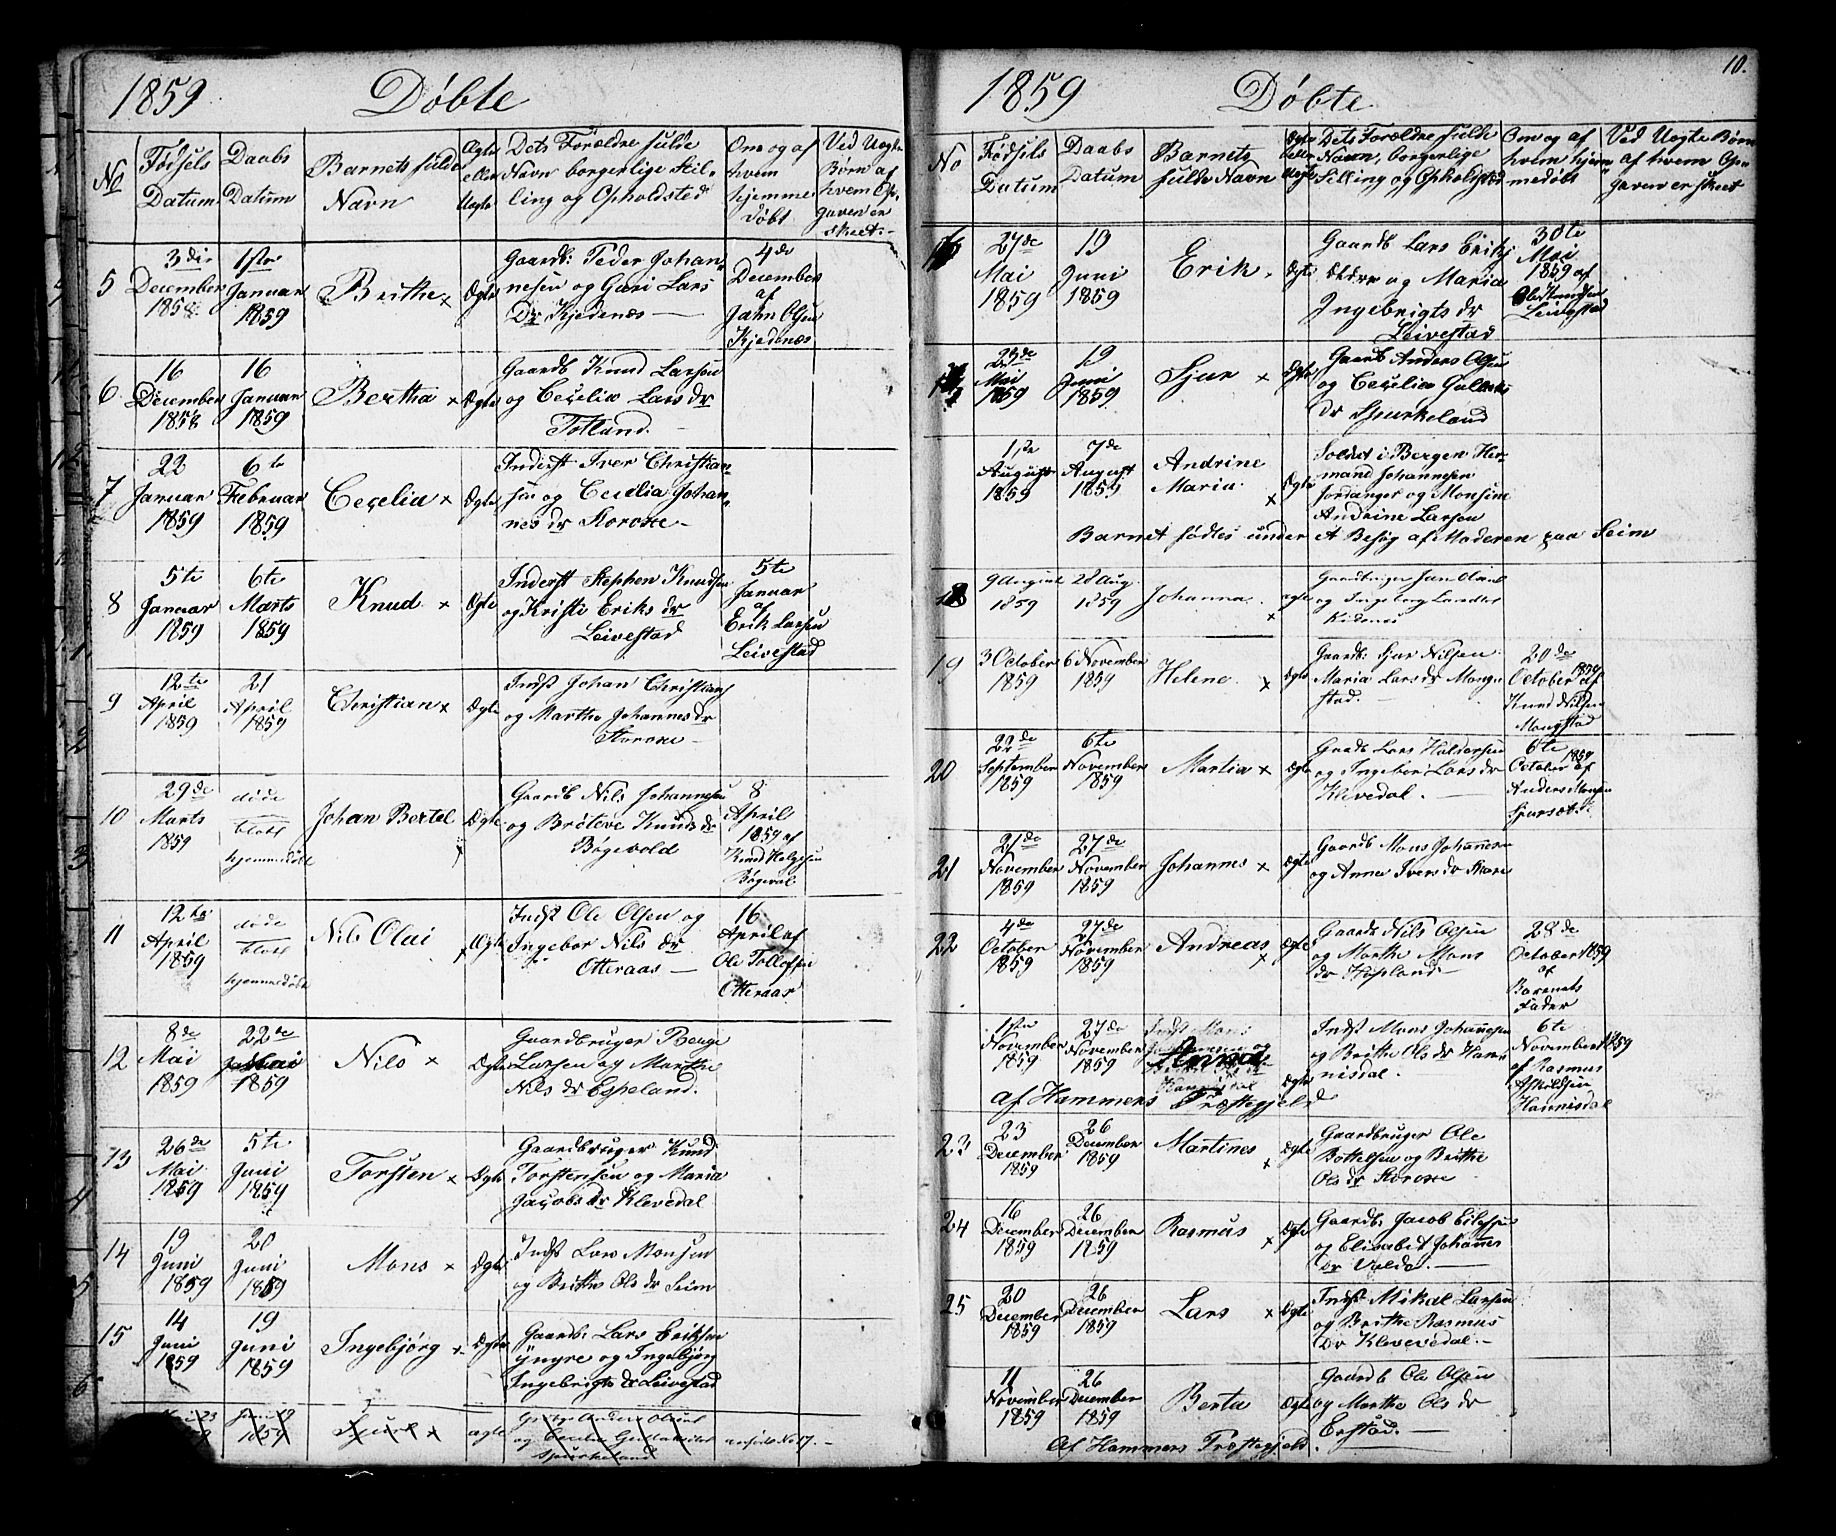 1859 Døbte
No
Fødsels
Datum
Daabs
Datum
Barnets fulde
Navn
Ægte
eller
Uægte
Dets Forældre fulde
Navn borgerlige Stil-
ling og Opholdsted
Om og af
hvem
hjemme
døbt
Ved Uægte
Børn af
hvem Op-
gaven er
skeet.
5
3die
December
1858
1ste
Januar
1859
Brithe ×
Ægte
Gaardb: Peder Johan-
nesen og Guri Lars
Dr Kjedenæs —
4de
December
af
Jahn Olsen
Kjedenæs
6
16
December
1858
16
Januar
1859
Bertha ×
Ægte
Gaardb Knud Larsen
og Cecelia Lars dr
Totland. -
7
22
Januar
1859
6te
Februar
1859
Cecelia ×
Ægte
Inderst Iver Christian-
sen og Cecelia Johan-
nes dr Storoxe -
8
5te
Januar
1859
6te
Marts
1859
Knud. ×
Ægte
Inderst Stephen Knudsen
og Kristi Eriks dr
Leivestad
5te
Januar
af
Erik Larsen
Leivestad
9
12te
April
1859
21
April
1859
Christian ×
Ægte
Indst Johan Christians
og Martha Johannes dr
Storoxe -
10
29de
Marts
1859
døde
blott
hjemmedøbt
Johan Bertel
×
Ægte
Gaardb Nils Johannesen
og Brøteve Knuds dr
Bøgevold
8
April
1859 af
Knud Helgesen
Bøgevol
11
12te
April
1859
døde
blott
hjemmedøbt
Nils Olai
×
Ægte
Indst Ole Olsen og
Ingebor Nils dr
Otteraas —
16
April af
Ole Tollefsen
Otteraas
12
8de
Mai
1859
22de
Mai
1859
Nils ×
Ægte
Gaardbruger Børge
Larsen og Marthe
Nils dr Espeland.
13
26de
Mai
1859
5te
Juni
1859
Torsten ×
Ægte
Gaardbruger Knud
Torstensen og Maria
Jacobs dr Klevedal
14
19
Juni
1859
20
Juni
1859
Mons ×
Ægte
Indst Lars Monsen
og Brithe Ols dr Seim
15
14
Juni
1859
19
Juni
1859
Ingebjørg ×
Ægte
Gaardb: Lars Eriksen
yngre og Ingebjørg
Ingebrigts dr Leivestad
Mai 23
Juni 19
1859
Sjur ×
ægte
Gaardbr Anders Olsen
og Cecilia Gullaks dr
Spurkeland
ansees No 17. -
1859 Døbte
10.
No
Fødsels
Datum
Daabs
Datum
Barnets
fulde Navn
Ægte
eller
Uægte
Dets Forældre fulde
Navn, borgerlige
Stilling og Opholdsted
Om og af
hvem hjem-
medøbt
Ved Uægte Børn
af hvem Op-
gaven er skeet
16
27de
Mai
1859
19
Juni
1859
Erik.
Ægte
Gaardb Lars Eriks
ældre og Maria
Ingebrigts dr
Leivestad
30te
Mai
1859 af
Ole Knudsen
Leivestad
17
23de
Mai
1859
19
Juni
1859
Sjur ×
Ægte
Gaardb Anders Olsen
og Cecelia Gullaks
dr Spurkeland
1ste
August
1859
7de
August
1859
Andrine
Maria.
×
Ægte
Soldat i Bergen Her-
mand Johannesen
Jordanger og Monsine
Andrine Larsen
Barnet fødtes under et Besøg af Moderen paa Seim
18
9 August
1859
28 Aug.
1859
Johanna.
×
ægte
Gaardbruger
og Ingeborg
19
3 October
1859
6 November
1859
Helene. ×
Ægte
Gaardb: Sjur Nilsen
Maria Lars dr Mong-
stad. -
20de
October 1859
af
Knud Nilsen
Mongstad
20
22de
September
1859
6te
November
1859
Martia ×
Ægte
Gaardb Lars Haldorsen
og Ingebor Lars dr
Klevedal. -
6te
October 1859
af
Anders Monsen
21
21de
November
1859
27de
November
1859
Johannes ×
Ægte
Gaardb Mons Johannesen
og Anna Ivers dr Skare
22
4de
October
1859
27de
November
1859
Andreas
×
Ægte
Gaardb Nils Olsen
og Marthe Mons
dr Hopland. -
28de
October 1859
af
Barnets
Fader
1ste
November
1859
27de
November
1859
Anna
Ægte
Indst Mons Johannesen
og Brithe Ols dr Han-
nisdal.
6te
November 1859
af Rasmus
Askildsen
Hannisdal
Af Hammers Præstegjeld
23
23
December
1859
26
December
1859
Martines
×
Ægte
Gaardbruger Ole
Bottelsen og Brithe
Ols dr Storoxe
24
16
December
1859
26
December
1859
Rasmus
×
Ægte
Gaardb: Jacob Eilefsen
og Elisabet Johannes
Dr Valde. —
25
20
December
1859
26
December
1859
Lars ×
Ægte
Indst Mikal Larsen
og Brithe Rasmus
Dr Klevedal. -
11
November
1859
26
December
1859
Berta
Ægte
Gaardb Ole Olsen
og Marthe Ols dr
Erstad. —
Af Hammers Præstegjeld.